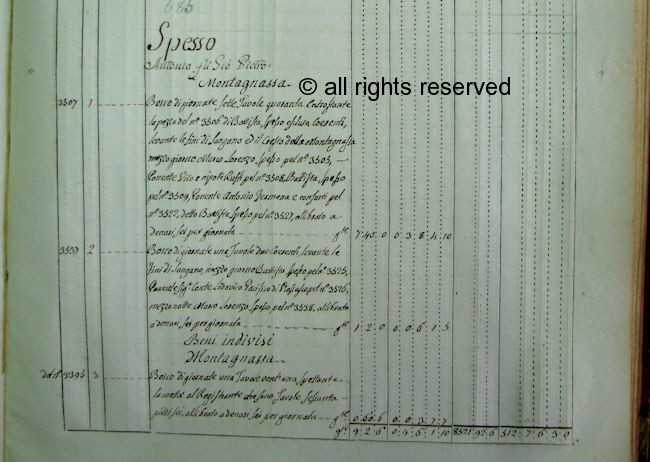 685
Spesso
Antonio fu Gio Pietro
Montagnassa
© all rights reserved
3507 1 Bosco di giornate sette Tavole quaranta Entrostante
la pezza del nº 3506 di Battista Spesso esclusa Coerenti,
levante le fini di Sangano ed il Cresto della Montagnassa
mezzo giorno Marco Lorenzo Spesso pel nº 3505,
Ponente Vito e nipoti Ruffi pel nº 3508, Battista Spesso
pel nº 3509, Ponente Antonio Germena e consorti pel
nº 3522, detto Battista Spesso pel nº 3527, allibrato a
denari sei per giornata 7: 40: 0 0: 3: 8: 4: 10
3537 2 Bosco di giornate una Tavole due Coerenti, levante le
fini di Sangano, mezzo giorno Battista Spesso pel nº 3525,
Ponente Sigr Conte Lodovico Pacifico di pel nº 3526,
mezza notte Marco Lorenzo Spesso pel nº 3538, allibrato
a denari sei per giornata 1: 2: 0 0: 0: 6: 1: 5
Beni indivisi
Montagnassa
dal nº 3395 3 Bosco di giornate una Tavole vent'una, spettante
la metà al Registrante che sono Tavole sessanta
piedi sei, allibrato a denari sei per giornata 0: 60: 6 0: 0: 3: 7: 7
9: 2: 6 0: 4: 6: 1: 10 8521: 92: 6 512: 7: 6: 3: 0